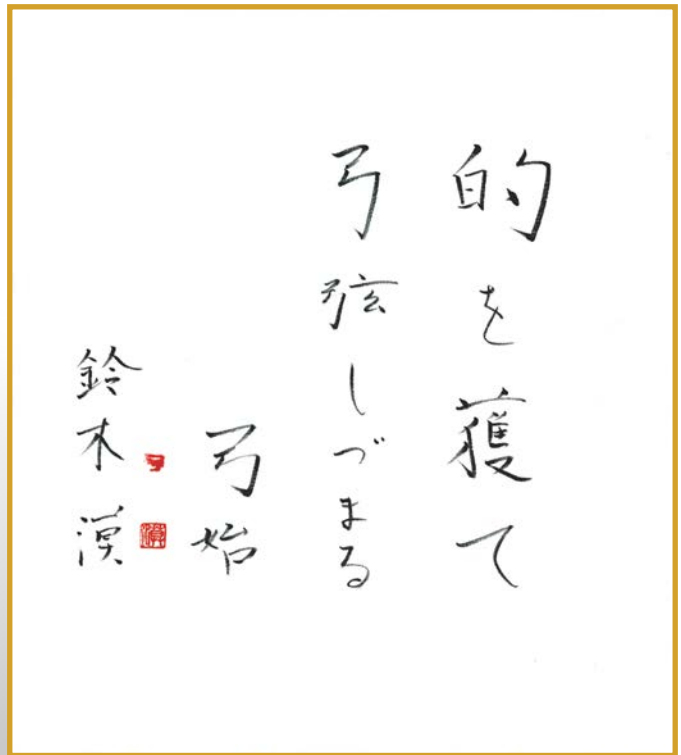 的を獲て
弓弦しづまる
弓始
鈴木漠